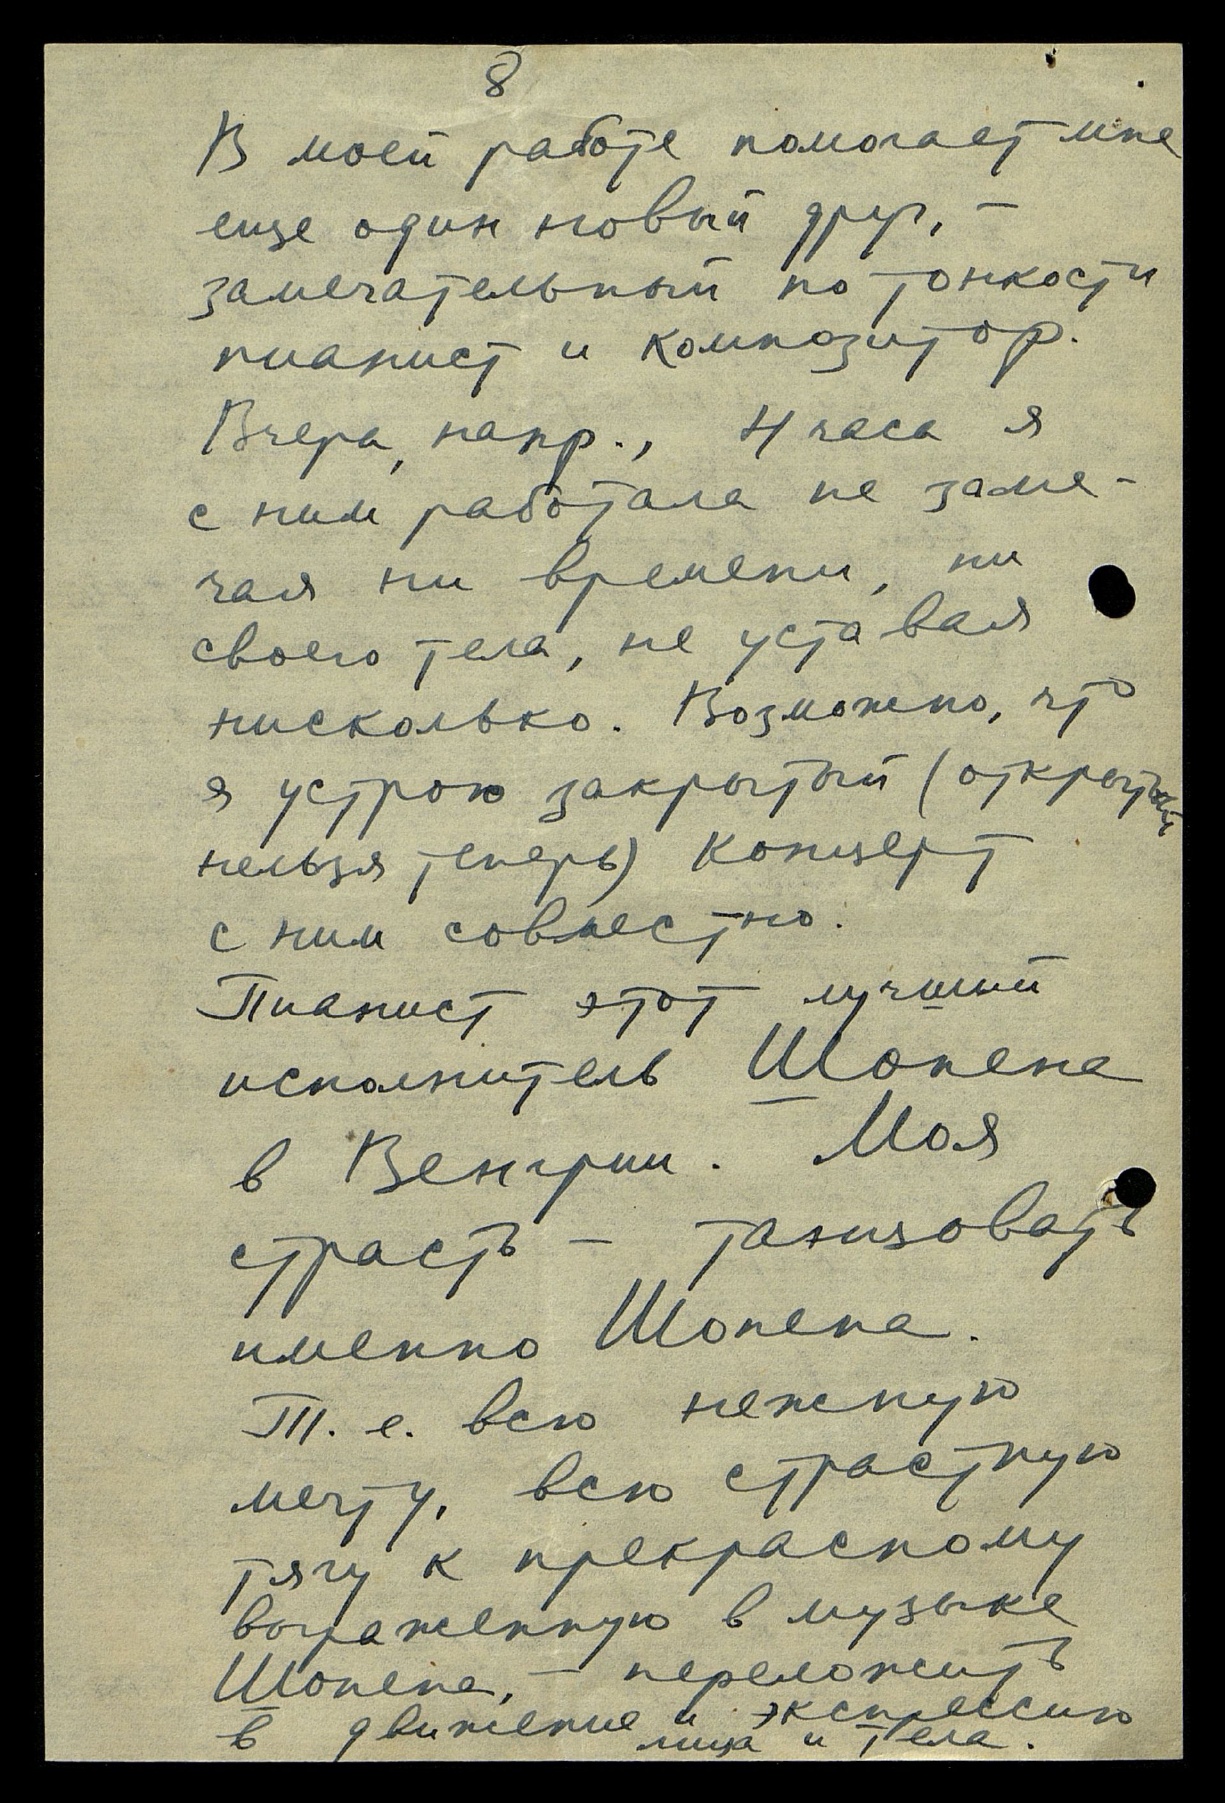 8
В моей работе помогает мне
еще один новый друг, –
замечательный по тонкости
пианист и композитор.
Вчера, напр., 4 часа я
с ним работала не заме-
чая ни времени, ни
своего тела, не уставая
нисколько. Возможно, что
я устрою закрытый (открытый
нельзя теперь) концерт
с ним совместно.
Пианист этот лучший
исполнитель Шопена
в Венгрии. Моя
страсть – танцовать
именно Шопена.
Т. е. всю нежную
мечту, всю страстную
тягу к прекрасному
выраженную в музыке
Шопена, – переложить
в движение и экспрессию
лица и тела.